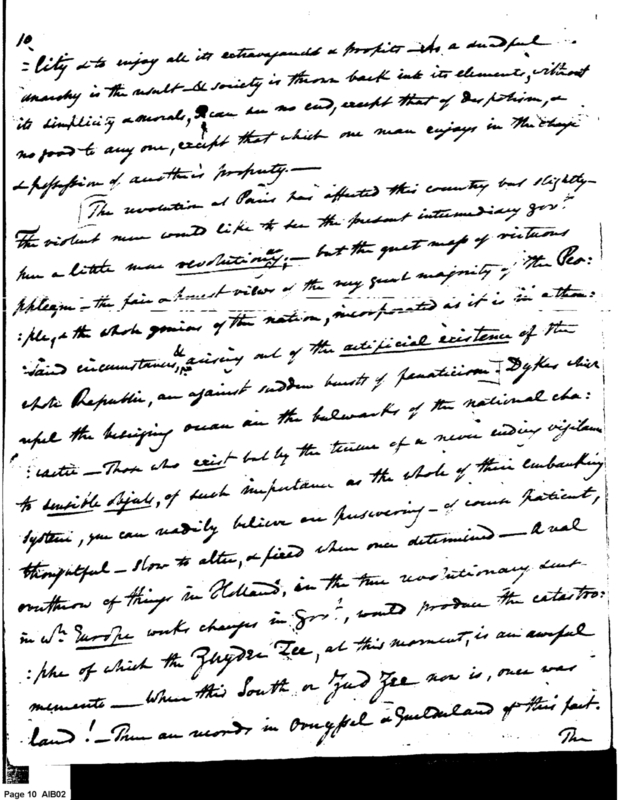 10
=lity & to enjoy all its extravagances & profits – As a dreadful
anarchy is the result – & society is thrown back into its elements, without
its simplicity & morals, I can see no end, except that of despotism, &
no good to any one, except that which one man enjoys in the change
& possession of another's property. —
[The revolution at Paris has affected this country but slightly –
The violent men would like to see the present intermediary govt.
here a little more revolutionary; – but the great mass of virtuous
phlegm – the fair & honest views of the very great majority of the Peo:
:ple, & the whole genius of the nation, incorporated as it is in a thou:
:sand circumstances, & arising out of the artificial existence of the
whole Republic, are against sudden bursts of fanaticism] Dykes which
repel the besieging ocean are the bulwarks of the national cha:
:racter – Those who exist but by the tenure of a never ending vigilance
to sensible objects, of such importance as the whole of their embanking
system, you can readily believe are persevering – of course patient,
thoughtful – slow to alter, & fixed when once determined – A real
overthrow of things in Holland, in the true revolutionary sense
in wh. Europe works changes in Govt., would produce the catastro:
:phe of which the Zuyder Zee, at this moment, is an awful
memento – Where this South or Zud Zee now is, once was
land! – There are records in Overyssel & Guelderland of this fact.
The
Page 10 AIB02